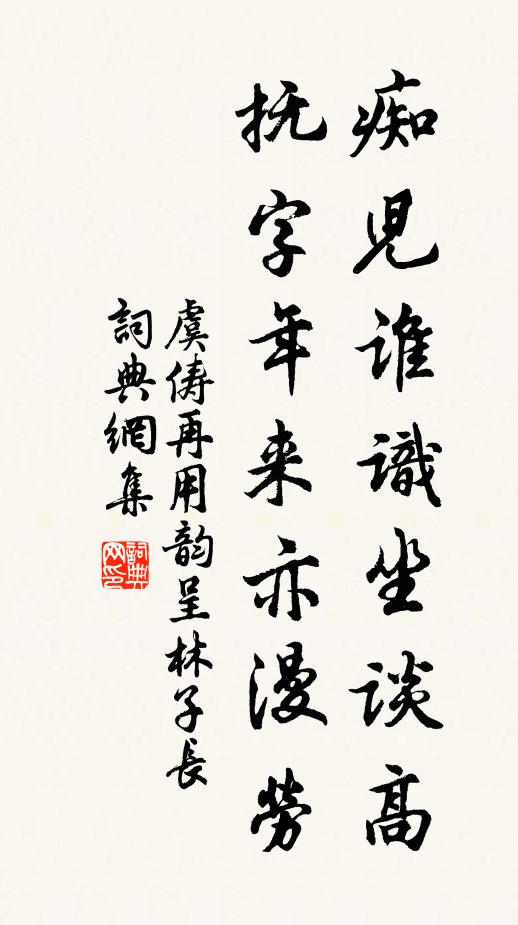 痴児谁識坐谈高
抚字年来亦漫勞
虞俦再用韵呈林子長
詞典網集
詞典网印